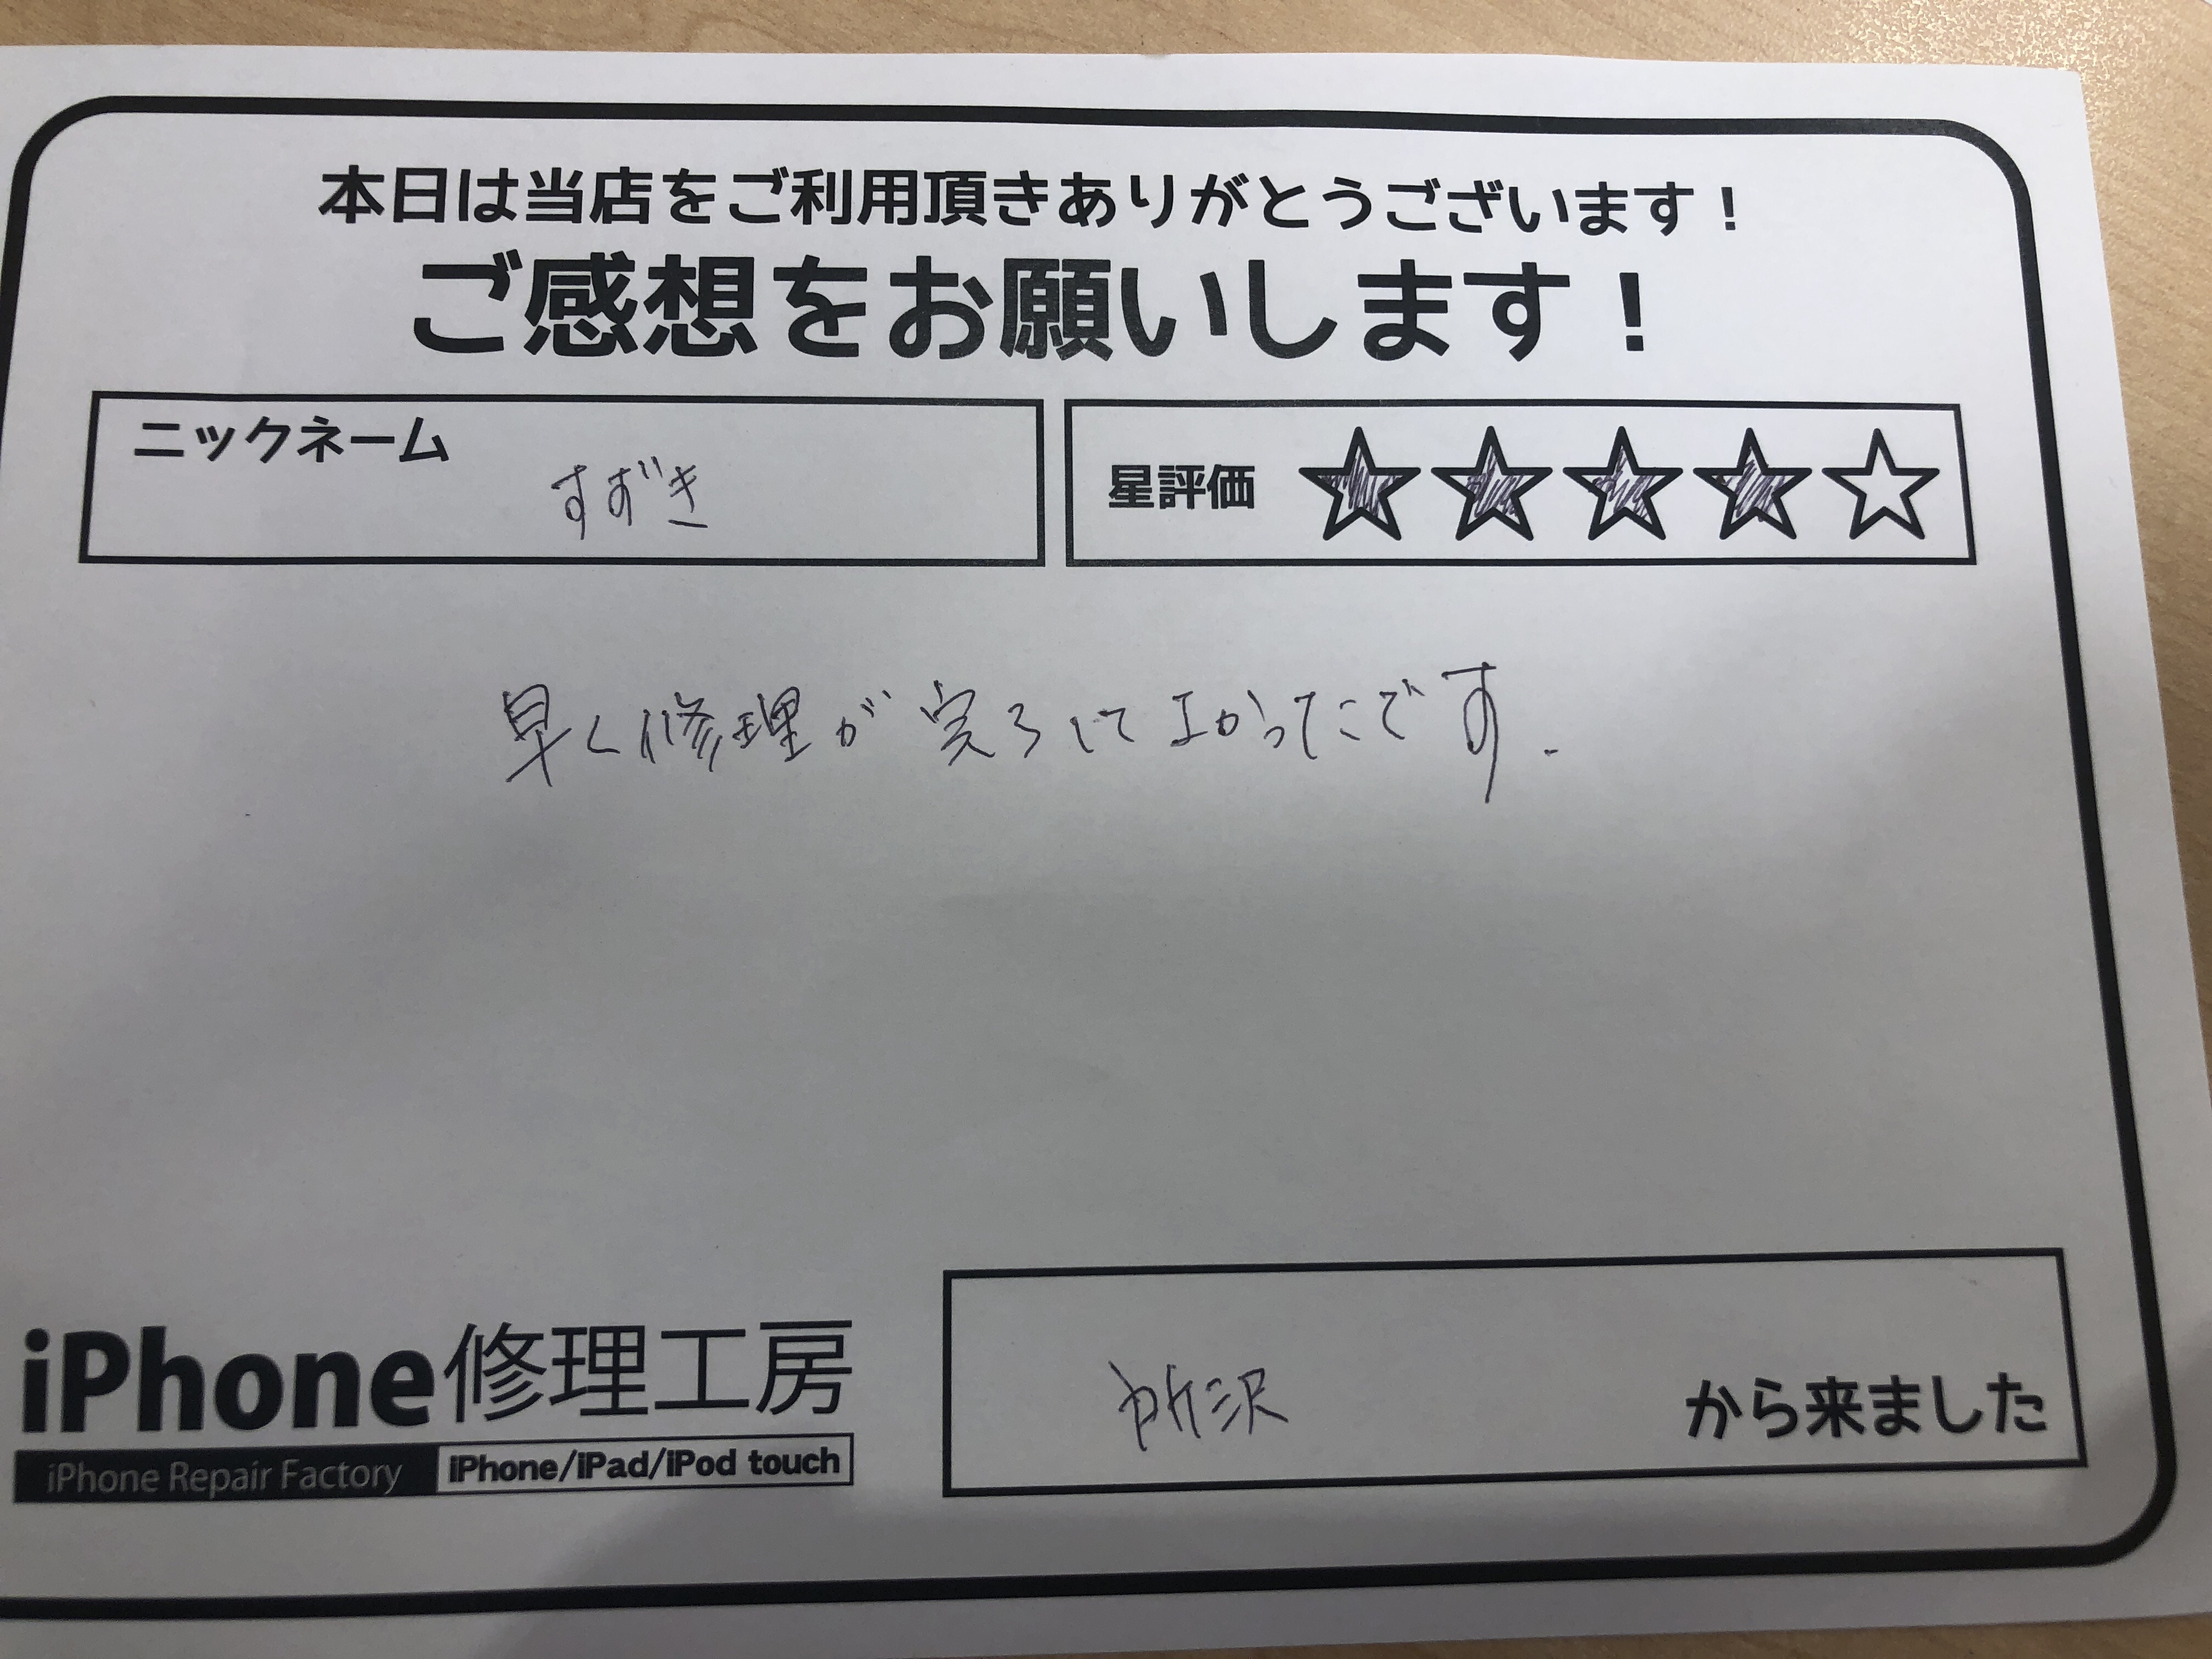 本日は当店をご利用頂きありがとうございます！
ご感想をお願いします！
ニックネーム
すずき
星評価 ★★★★☆
早く修理が完了してよかったです.
iPhone修理工房
iPhone Repair Factory iPhone/iPad/iPod touch
所沢 から来ました